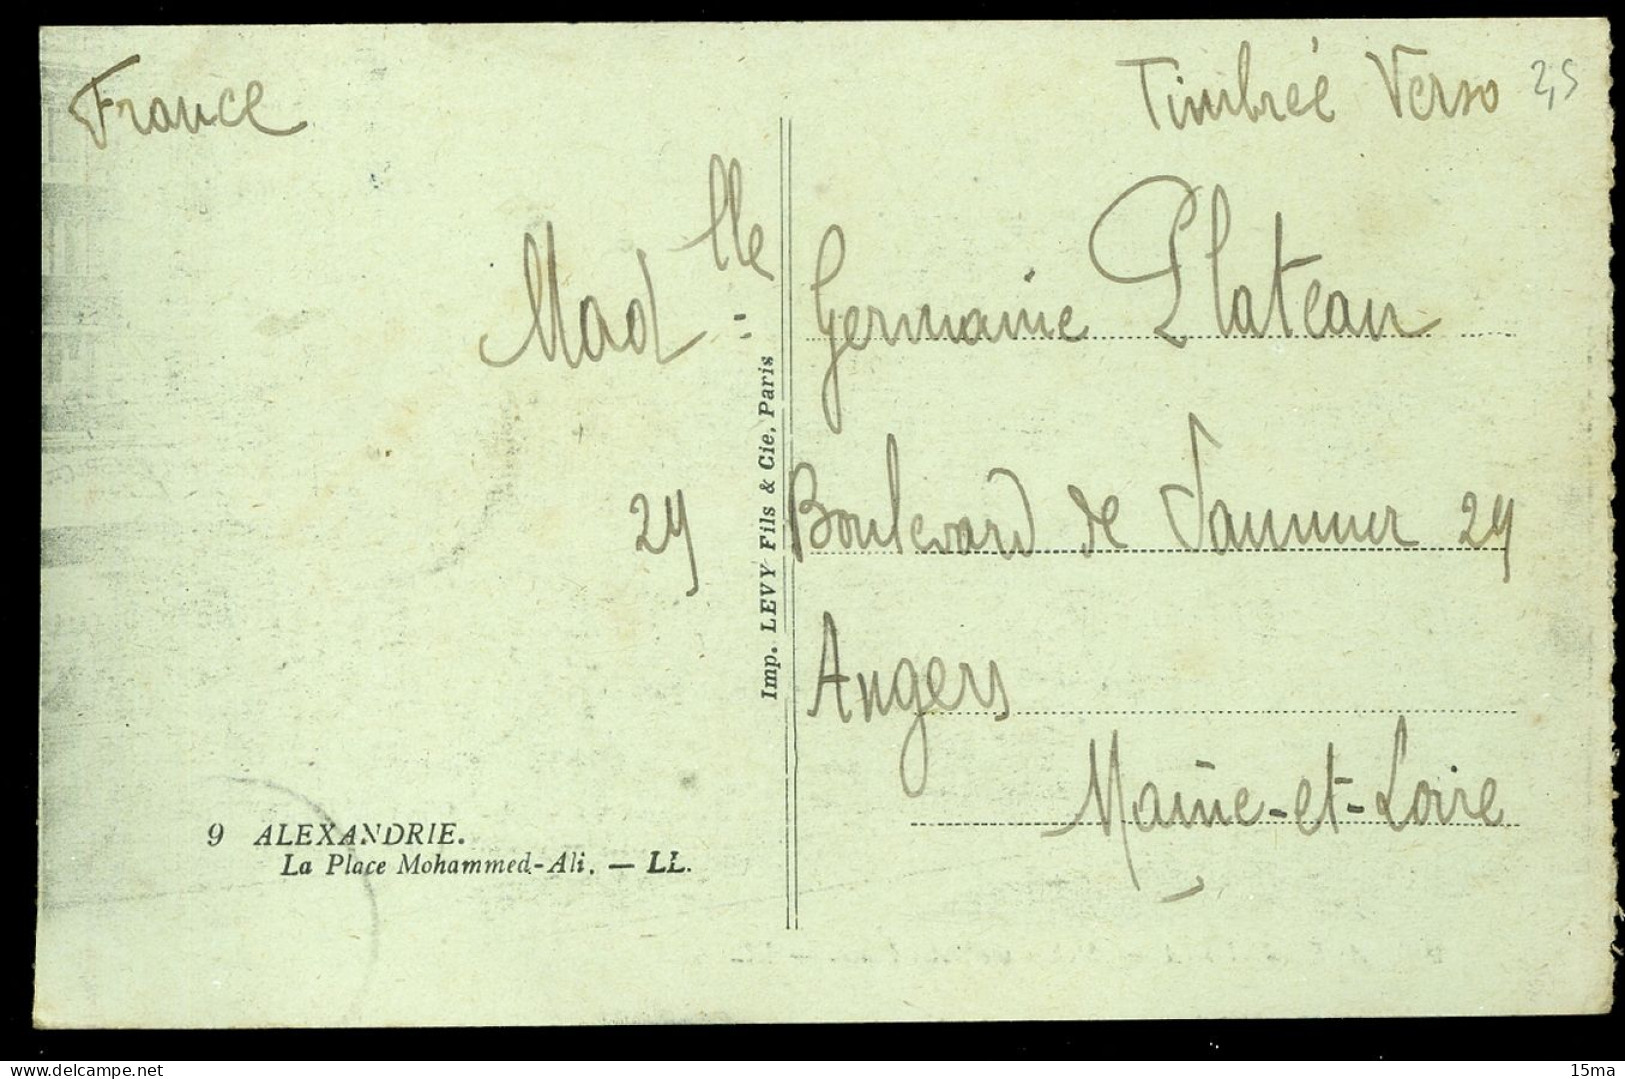 France
Timbrée Verso 2,5
Mad lle = Germaine Plateau
29 Boulevard de Saumur 29
Angers
Maine-et-Loire
Imp. LEVY Fils & Cie, Paris
9 ALEXANDRIE.
La Place Mohammed-Ali. — LL.
15ma